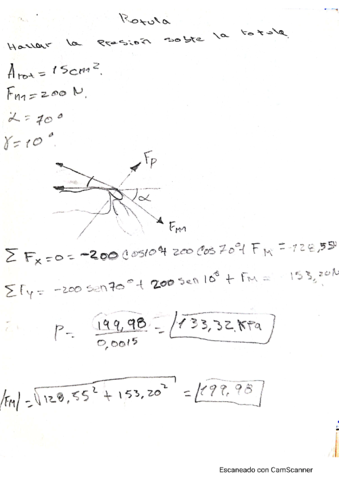 Rotula
Hallar la presión sobre la rotula
Arot = 15cm².
Fm = 200 N.
α = 70°
γ = 10°
Fp
α
Fm
Σ Fx = 0 = -200 cos10° + 200 cos 70° + FM = 128,55
ΣFy = -200 sen70° + 200 sen 10° + FM = 153,20N
P = 199,98 / 0,0015 = 133,32 KPa
/FM/ = √128,55² + 153,20² = 199,98
Escaneado con CamScanner